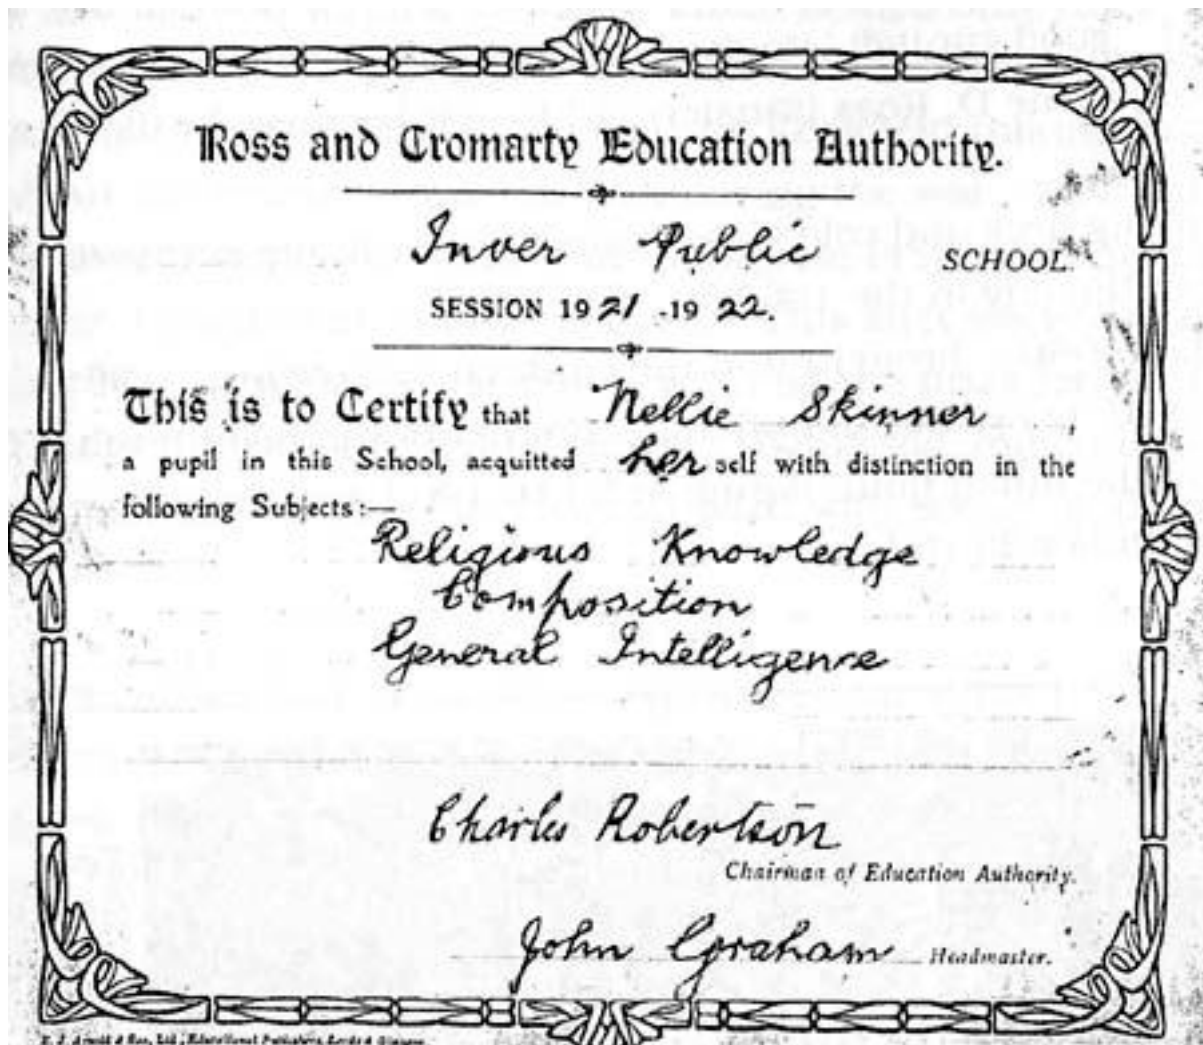 Ross and Cromarty Education Authority.
Inver Public SCHOOL.
SESSION 1921-1922.
This is to Certify that Nellie Skinner,
a pupil in this School, acquitted her self with distinction in the
following Subjects:—
Religious Knowledge
Composition
General Intelligence
Charles Robertson
Chairman of Education Authority.
John Graham Headmaster.
E. J. Arnold & Son, Ltd., Educational Publishers, Leeds & Glasgow